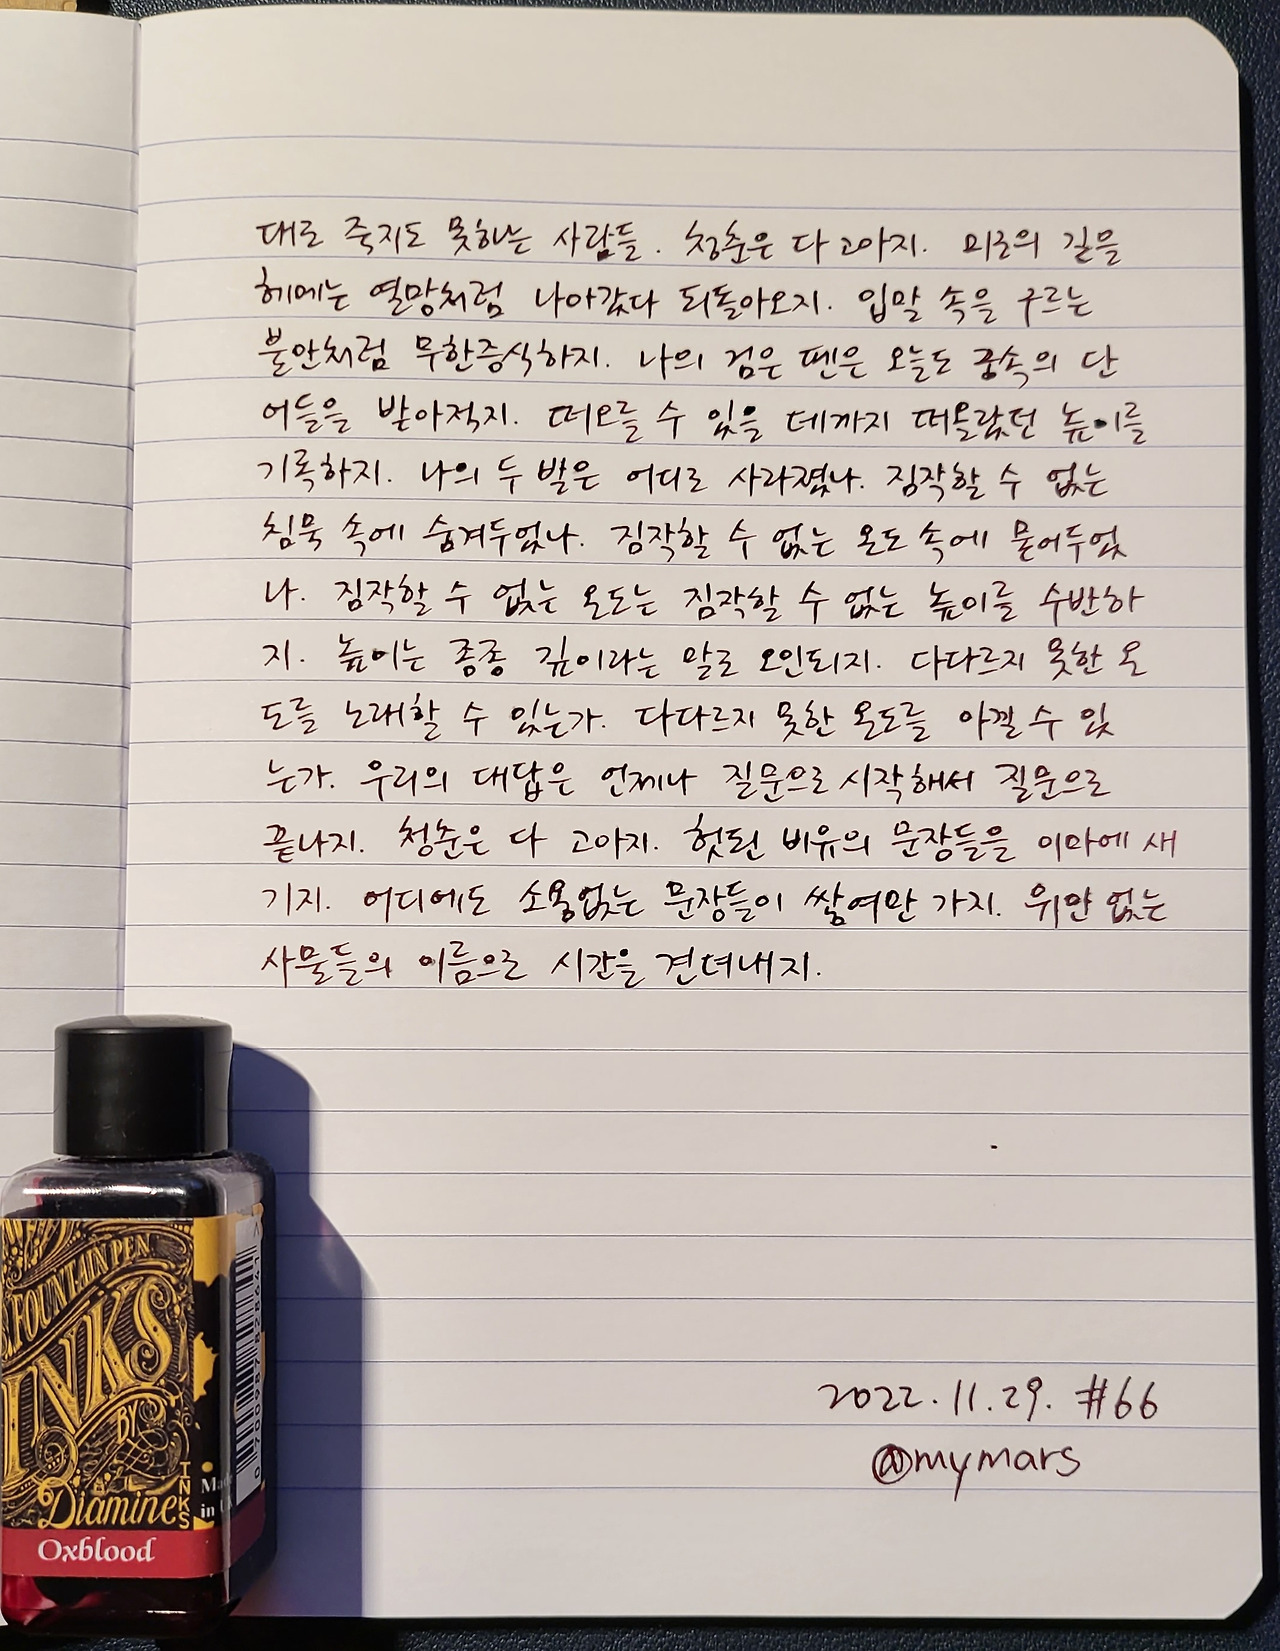 대로 죽지도 못하는 사람들. 청춘은 다 고아지. 미로의 길을
헤매는 열망처럼 나아갔다 되돌아오지. 입말 속을 구르는
불안처럼 무한증식하지. 나의 검은 펜은 오늘도 궁속의 단
어들을 받아적지. 떠오를 수 있을 데까지 떠올랐던 높이를
기록하지. 나의 두 발은 어디로 사라졌나. 짐작할 수 없는
침묵 속에 숨겨두었나. 짐작할 수 없는 온도 속에 묻어두었
나. 짐작할 수 없는 온도는 짐작할 수 없는 높이를 수반하
지. 높이는 종종 깊이라는 말로 오인되지. 다다르지 못한 온
도를 노래할 수 있는가. 다다르지 못한 온도를 아낄 수 있
는가. 우리의 대답은 언제나 질문으로 시작해서 질문으로
끝나지. 청춘은 다 고아지. 헛된 비유의 문장들을 이마에 새
기지. 어디에도 소용없는 문장들이 쌓여만 가지. 위안 없는
사물들의 이름으로 시간을 견뎌내지.
2022.11.29. #66
@mymars
FOUNTAIN PEN
INKS
BY
Diamine
INKS
Made
in UK
0 700987 828641 >
Oxblood